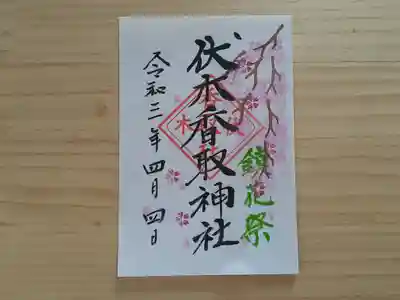 鎮花祭
伏木香取神社
令和三年四月四日